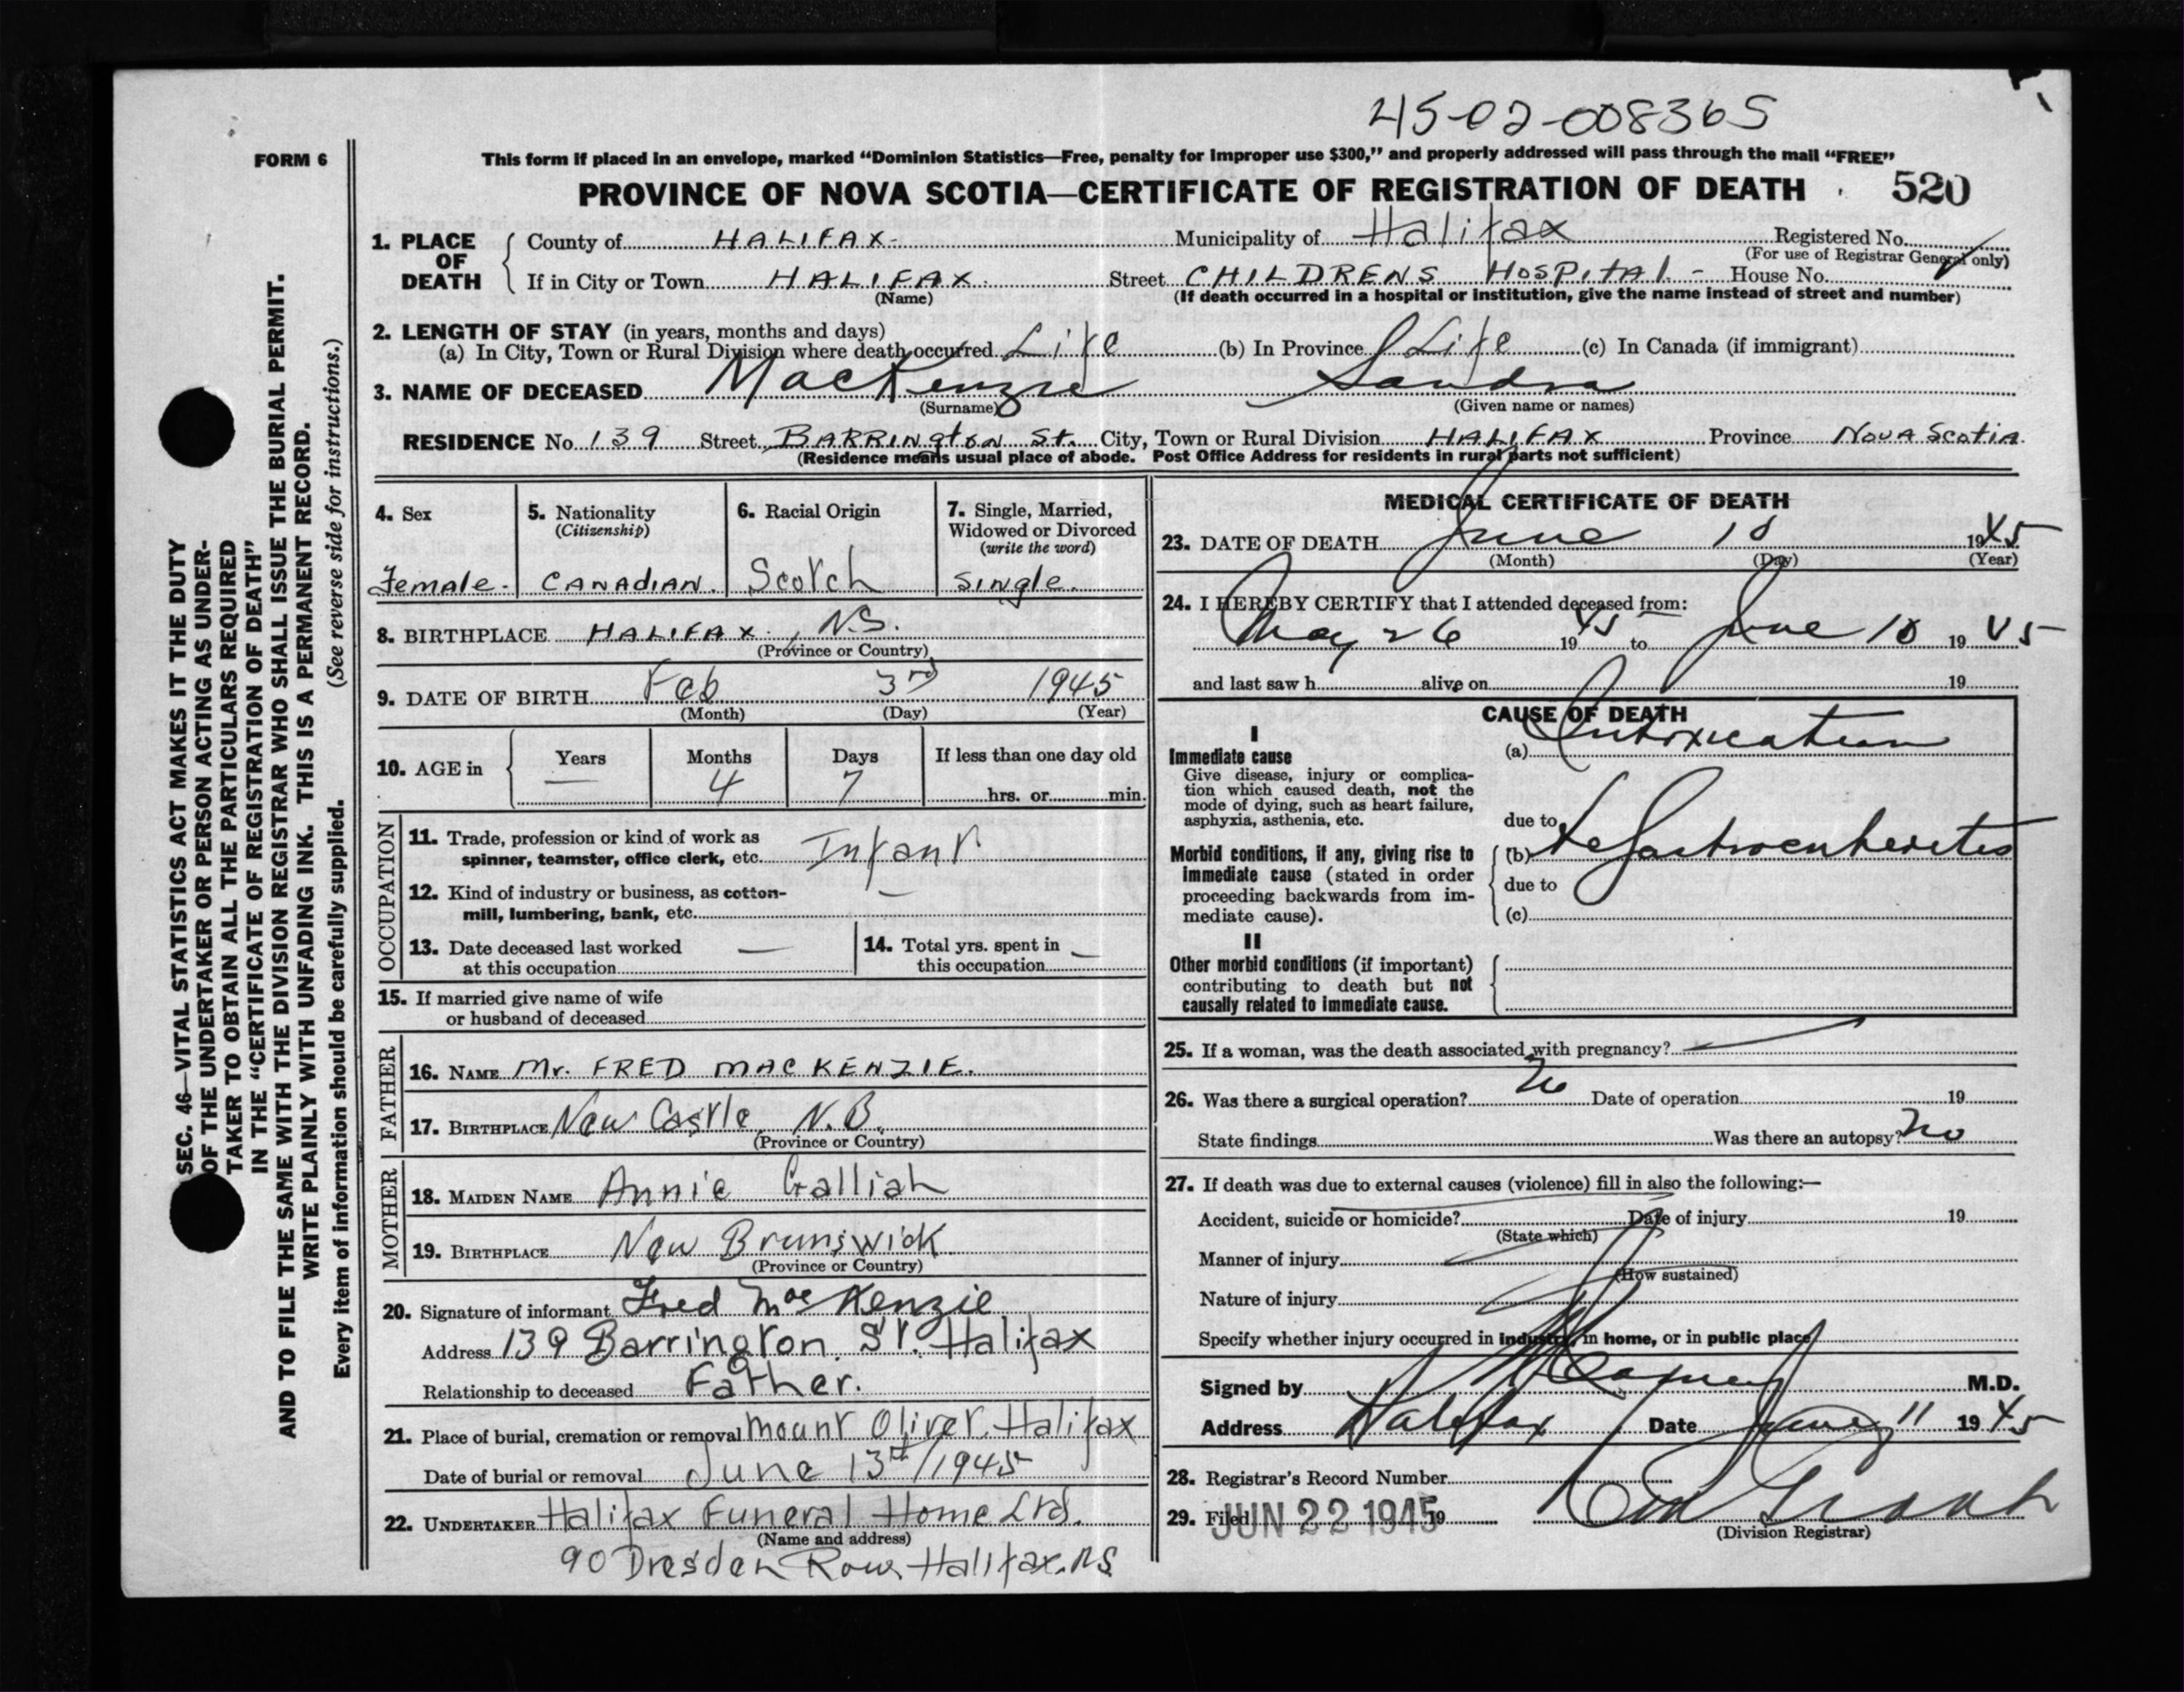 45-02-008365
FORM 6
This form if placed in an envelope, marked “Dominion Statistics—Free, penalty for improper use $300,” and properly addressed will pass through the mail “FREE”
PROVINCE OF NOVA SCOTIA—CERTIFICATE OF REGISTRATION OF DEATH 520
SEC. 46—VITAL STATISTICS ACT MAKES IT THE DUTY
OF THE UNDERTAKER OR PERSON ACTING AS UNDER-
TAKER TO OBTAIN ALL THE PARTICULARS REQUIRED
IN THE “CERTIFICATE OF REGISTRATION OF DEATH”
AND TO FILE THE SAME WITH THE DIVISION REGISTRAR WHO SHALL ISSUE THE BURIAL PERMIT.
WRITE PLAINLY WITH UNFADING INK. THIS IS A PERMANENT RECORD.
Every item of information should be carefully supplied. (See reverse side for instructions.)
1. PLACE OF DEATH
County of HALIFAX Municipality of Halifax Registered No.
(For use of Registrar General only)
If in City or Town HALIFAX. Street CHILDRENS HOSPITAL - House No.
(Name) (If death occurred in a hospital or institution, give the name instead of street and number)
2. LENGTH OF STAY (in years, months and days)
(a) In City, Town or Rural Division where death occurred Life (b) In Province Life (c) In Canada (if immigrant)
3. NAME OF DECEASED MacKenzie Sandra
(Surname) (Given name or names)
RESIDENCE No 139 Street BARRINGTON St. City, Town or Rural Division HALIFAX Province NOVA Scotia
(Residence means usual place of abode. Post Office Address for residents in rural parts not sufficient)
4. Sex
Female.
5. Nationality
(Citizenship)
CANADIAN.
6. Racial Origin
Scotch
7. Single, Married,
Widowed or Divorced
(write the word)
Single.
8. BIRTHPLACE HALIFAX, N.S.
(Province or Country)
9. DATE OF BIRTH Feb 3rd 1945
(Month) (Day) (Year)
10. AGE in
Years Months Days If less than one day old
— 4 7 hrs. or min.
OCCUPATION
11. Trade, profession or kind of work as
spinner, teamster, office clerk, etc. Infant
12. Kind of industry or business, as cotton-
mill, lumbering, bank, etc. —
13. Date deceased last worked
at this occupation —
14. Total yrs. spent in
this occupation —
15. If married give name of wife
or husband of deceased
FATHER
16. NAME Mr. FRED MACKENZIE.
17. BIRTHPLACE New Castle, N.B.
(Province or Country)
MOTHER
18. MAIDEN NAME Annie Galliah
19. BIRTHPLACE New Brunswick
(Province or Country)
20. Signature of informant Fred MacKenzie
Address 139 Barrington St. Halifax
Relationship to deceased Father.
21. Place of burial, cremation or removal Mount Olivet, Halifax
Date of burial or removal June 13th/1945
22. UNDERTAKER Halifax Funeral Home Ltd.
(Name and address)
90 Dresden Row, Halifax. N.S.
MEDICAL CERTIFICATE OF DEATH
23. DATE OF DEATH June 10 1945
(Month) (Day) (Year)
24. I HEREBY CERTIFY that I attended deceased from:
May 26 1945 to June 10 1945
and last saw h alive on 19
CAUSE OF DEATH
I
Immediate cause
Give disease, injury or complica-
tion which caused death, not the
mode of dying, such as heart failure,
asphyxia, asthenia, etc.
(a) Intoxication
due to
Morbid conditions, if any, giving rise to
immediate cause (stated in order
proceeding backwards from im-
mediate cause).
(b) Gastroenteritis
due to
(c)
II
Other morbid conditions (if important)
contributing to death but not
causally related to immediate cause.
25. If a woman, was the death associated with pregnancy?
26. Was there a surgical operation? No Date of operation 19
State findings Was there an autopsy? No
27. If death was due to external causes (violence) fill in also the following:—
Accident, suicide or homicide? Date of injury 19
(State which)
Manner of injury
(How sustained)
Nature of injury
Specify whether injury occurred in industry, in home, or in public place
Signed by M.D.
Address Halifax Date June 11 1945
28. Registrar's Record Number
29. Filed JUN 22 1945 19
(Division Registrar)